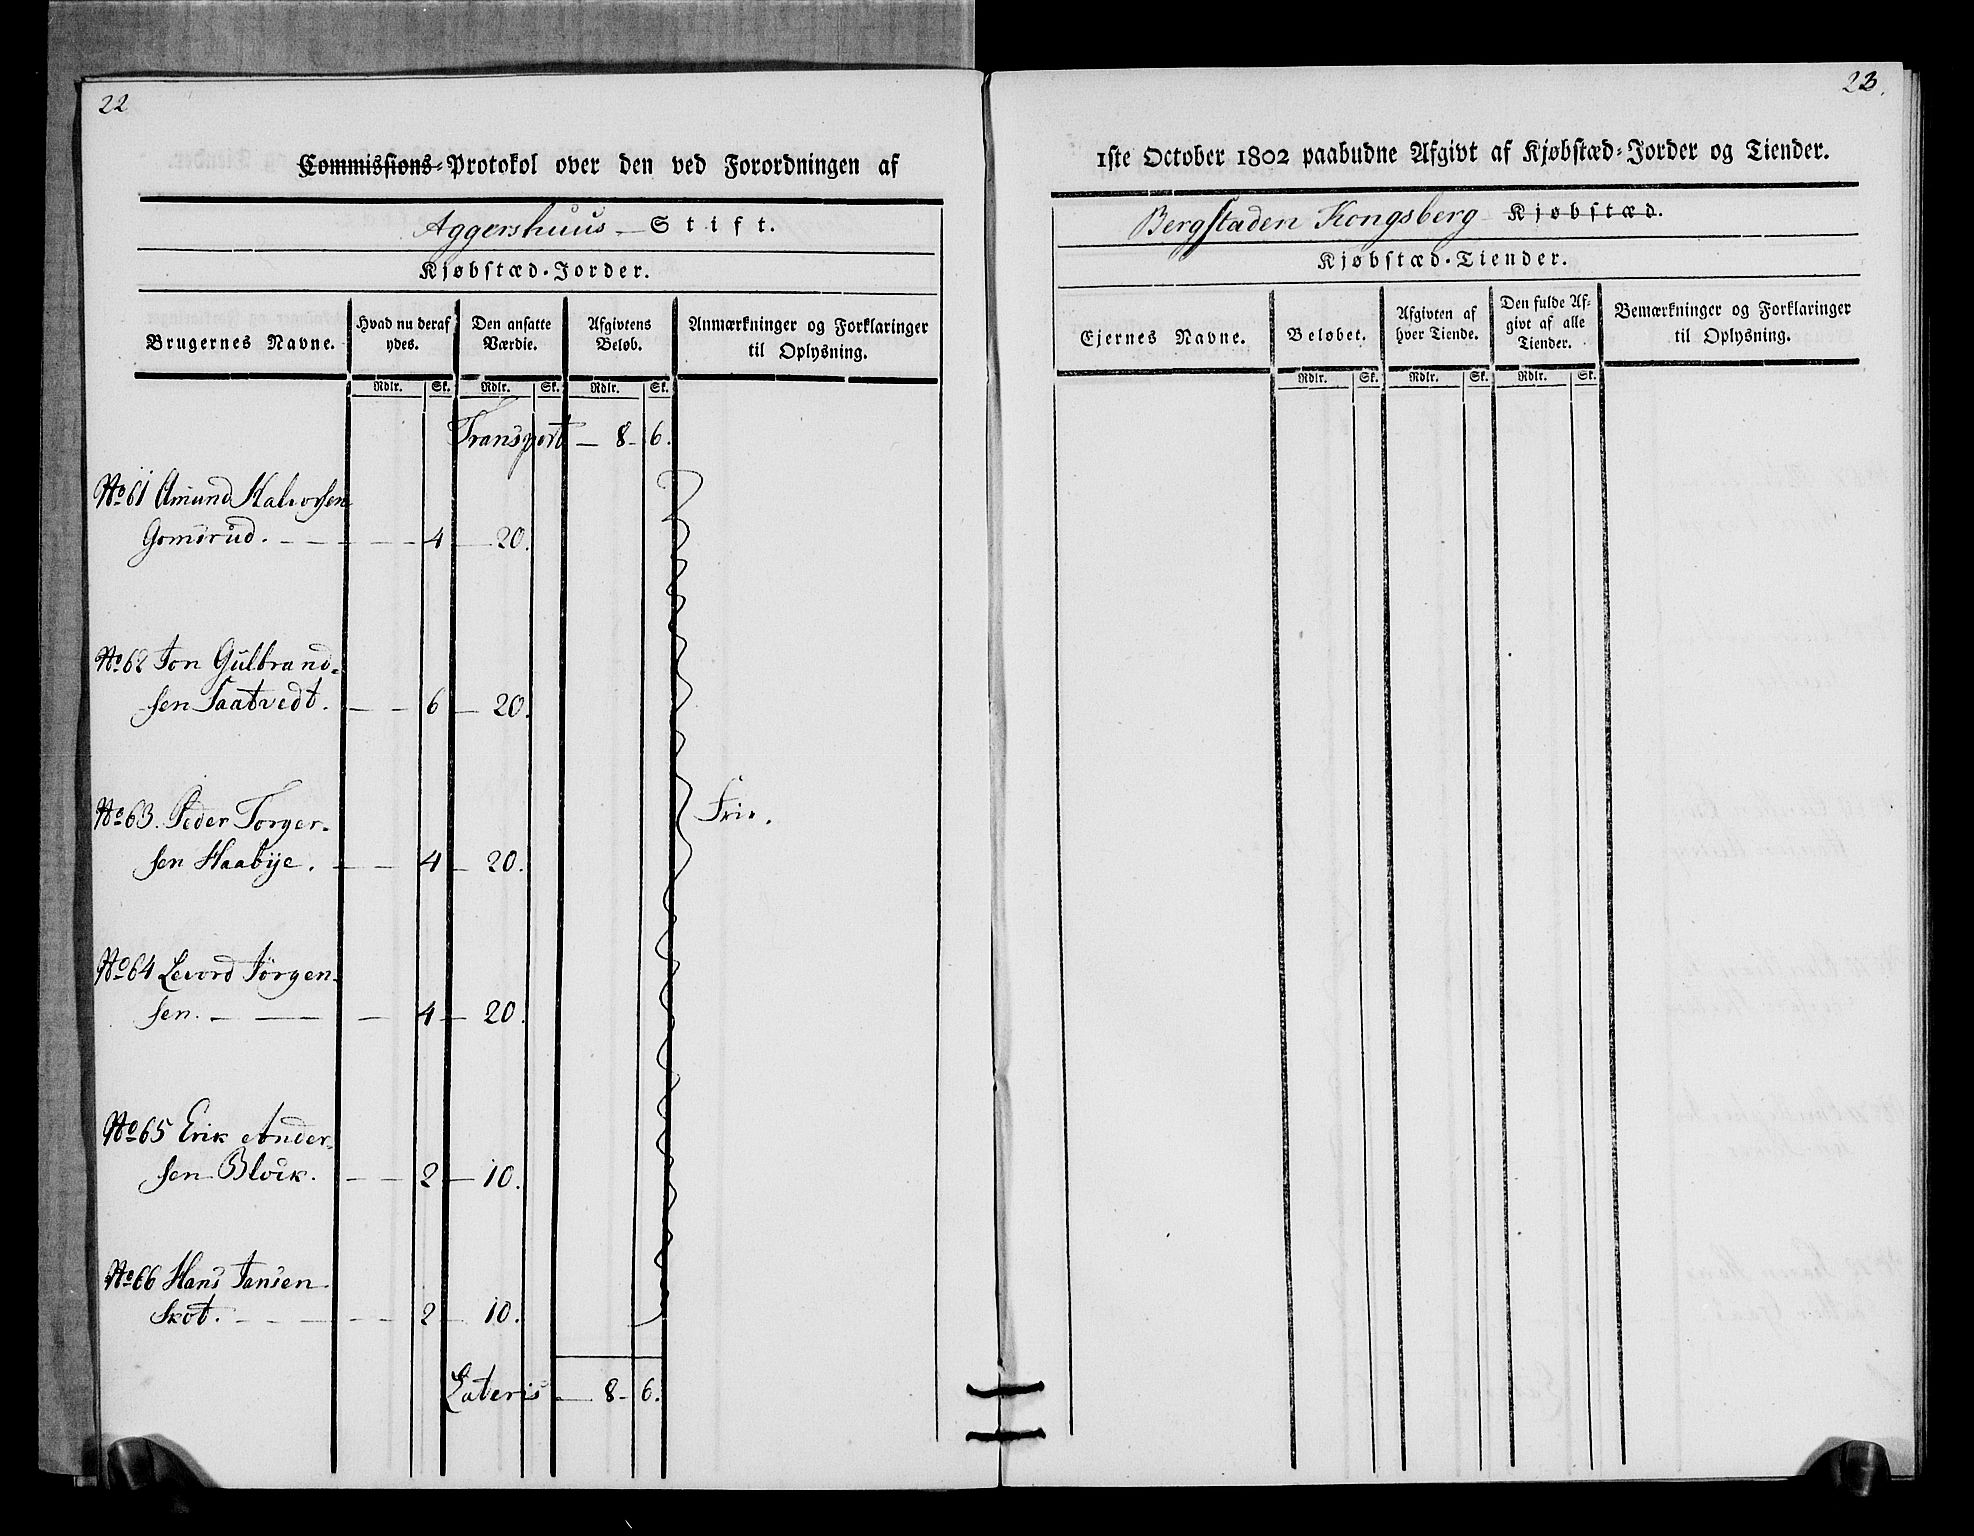 22
Commissions-Protokol over den ved Forordningen af
Aggershuus Stift.
Kjøbstæd-Jorder.
Brugernes Navne. Hvad nu deraf ydes. Den ansatte Værdie. Afgivtens Beløb. Anmærkninger og Forklaringer til Oplysning.
Rdlr. Sk. Rdlr. Sk. Rdlr. Sk.
Transport — 8 - 6.
No 61 Amund Halvorsen
Gomsrud. — — — 4 — 20.
No 62 Jon Gulbrand-
sen Saatvedt. — — 6 — 20.
No 63. Peder Torger-
sen Haabye. — — 4 — 20.
Frie.
No 64 Levord Jörgen-
sen. — — — 4 — 20.
No 65 Erik Ander-
sen Block. — — 2 — 10.
No 66 Hans Jansen
Skot. — — — 2 — 10.
Lateris — 8 - 6.
23.
1ste October 1802 paabudne Afgivt af Kjøbstæd-Jorder og Tiender.
Bergstaden Kongsberg Kjøbstæd.
Kjøbstæd-Tiender.
Ejernes Navne. Beløbet. Afgivten af hver Tiende. Den fulde Afgivt af alle Tiender. Bemærkninger og Forklaringer til Oplysning.
Rdlr. Sk. Rdlr. Sk. Rdlr. Sk.